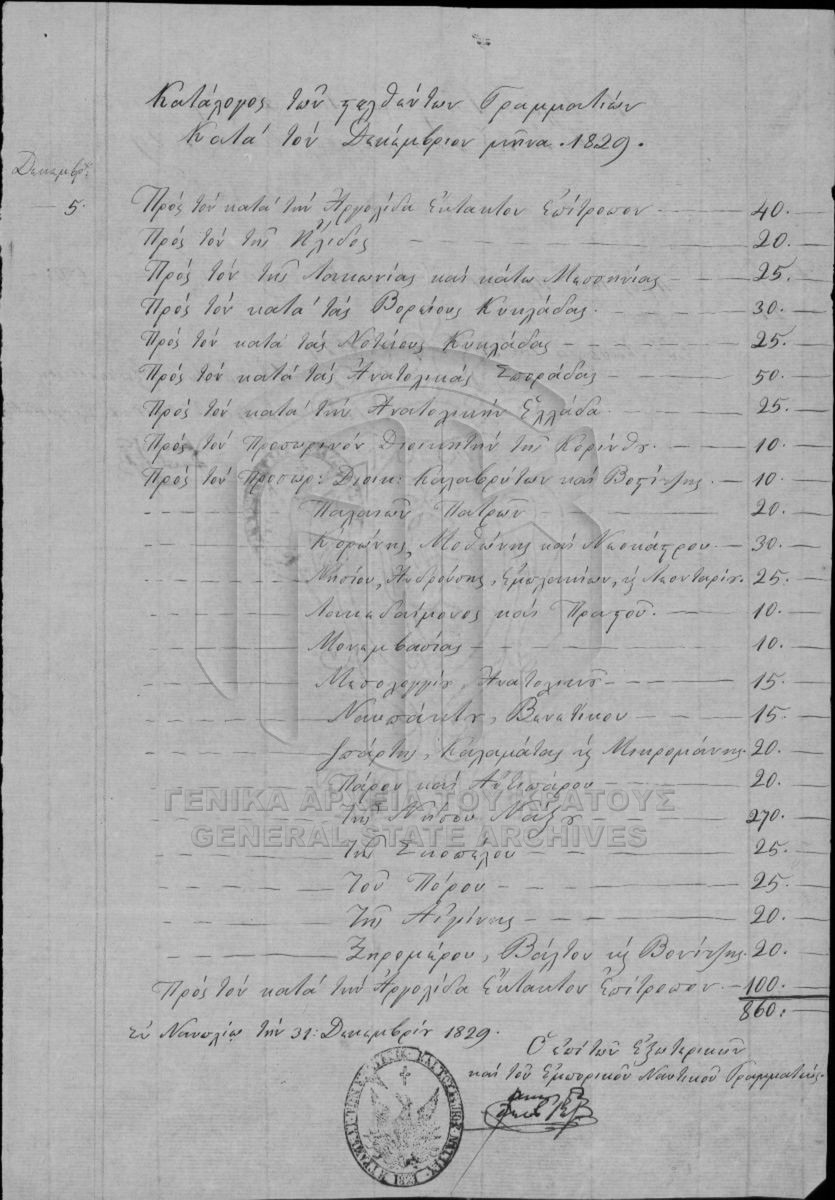 Κατάλογος τῶν σταλθέντων Γραμματίων
Κατὰ τὸν Δεκέμβριον μῆνα. 1829.
Δεκεμβρ:
5. Πρὸς τὸν κατὰ τὴν Ἀργολίδα Ἔκτακτον Ἐπίτροπον 40.
Πρὸς τὸν τῆς Ἤλιδος 20.
Πρὸς τὸν τῆς Λακωνίας καὶ κάτω Μεσσηνίας 25.
Πρὸς τὸν κατὰ τὰς Βορείους Κυκλάδας. 30.
Πρὸς τὸν κατὰ τὰς Νοτείους Κυκλάδας 25.
Πρὸς τὸν κατὰ τὰς Ἀνατολικὰς Σποράδας 50.
Πρὸς τὸν κατὰ τὴν Ἀνατολικὴν Ἑλλάδα. 25.
Πρὸς τὸν Προσωρινὸν Διοικητὴν τῆς Κορίνθου. 10.
Πρὸς τὸν Προσωρ: Διοικ: Καλαβρύτων καὶ Βοστίτζης. 10.
Παλαιῶν Πατρῶν 20.
Κορώνης, Μοθώνης καὶ Νεοκάστρου. 30.
Νησίου, Ἀνδρούσης, Ἐμπλακίων, κ Λεονταρίου. 25.
Λακεδαίμονος καὶ Πραστοῦ. 10.
Μονεμβασίας 10.
Μεσολογγίου, Ἀνατολικοῦ 15.
Ναυπάκτου, Βενετικου 15.
Σπάρτης, Καλαμάτας κ Μικρομάνης. 20.
Πάρου καὶ Ἀντιπάρου 20.
τῆς Νήσου Νάξου 270.
τῆς Σκοπέλου 25.
Τοῦ Πόρου 25.
τῆς Αἰγίνης 20.
Ξηρομέρου, Βάλτου κ Βονίτζης. 20.
Πρὸς τὸν κατὰ τὴν Ἀργολίδα Ἔκτακτον Ἐπίτροπον. 100.
860.
Ἐν Ναυπλίῳ τὴν 31: Δεκεμβρίου 1829.
Ὁ ἐπὶ τῶν Ἐξωτερικῶν
καὶ τοῦ Ἐμπορικοῦ Ναυτικοῦ Γραμματεύς.
ΓΕΝΙΚΑ ΑΡΧΕΙΑ ΤΟΥ ΚΡΑΤΟΥΣ
GENERAL STATE ARCHIVES